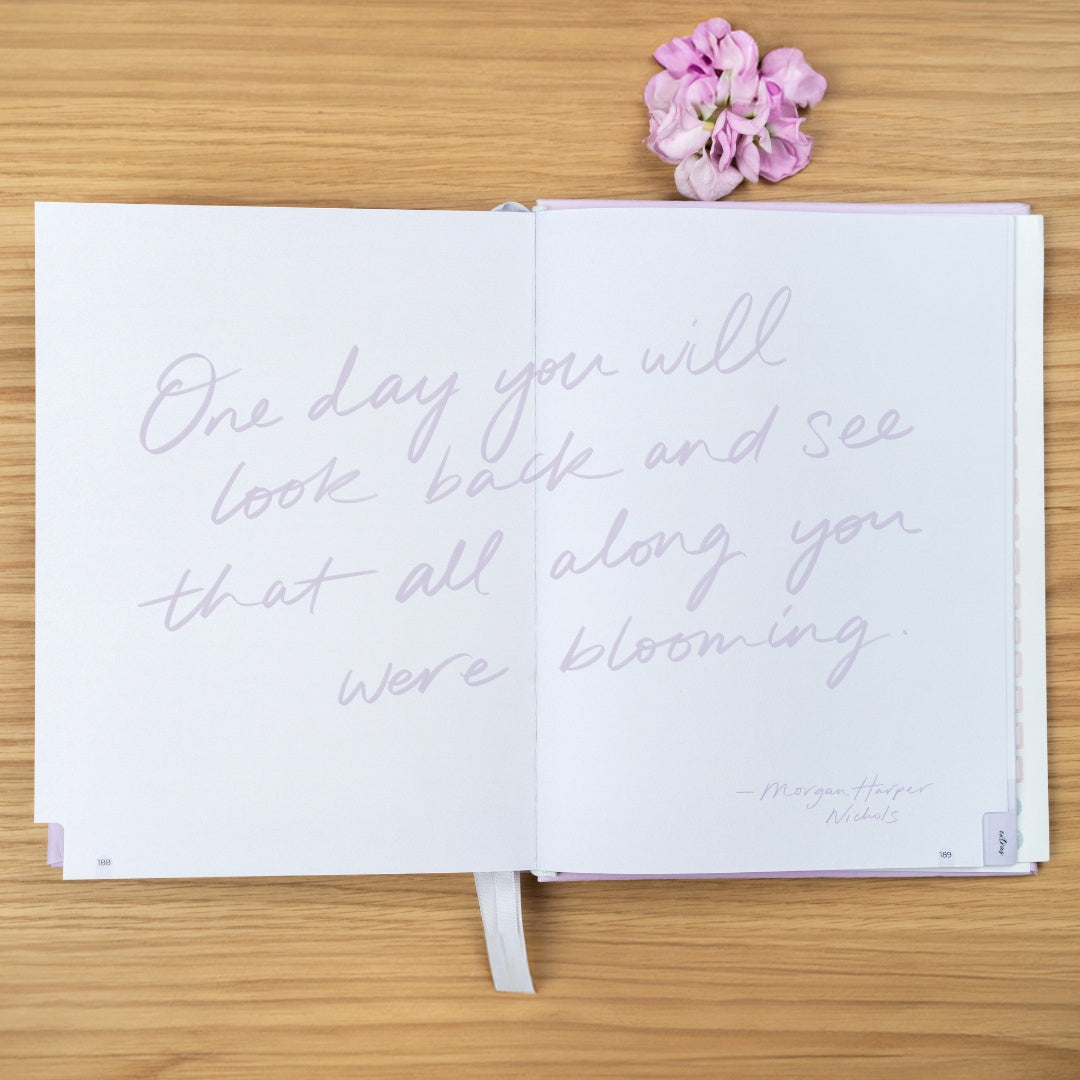 One day you will
look back and see
that all along you
were blooming.
— Morgan Harper
Nichols
188
189
extras